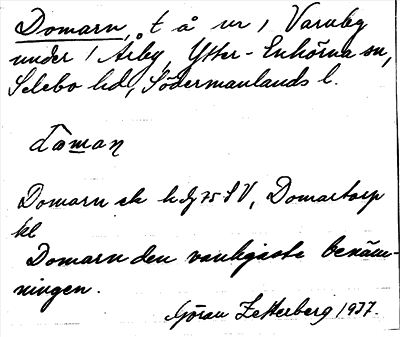 Domarn, t å nr 1 Varnby
under 1 Årby, Ytter-Enhörna sn,
Selebo hd, Södermanlands l.
dɷman
Domarn ek hdg 75 SV, Domartorp
kl
Domarn den vanligaste benäm-
ningen.
Göran Zetterberg 1937.